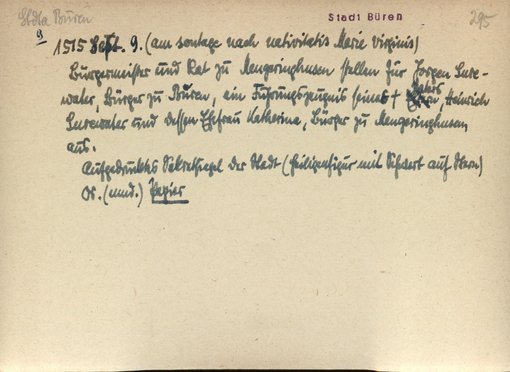 Stdta Büren
Stadt Büren
295
9
1515 Sept. 9. (am sontage nach nativitatis Marie virginis)
Bürgermeister und Rat zu Mengeringhusen stellen für Jorgen Sure-
water, Bürger zu Büren, ein Führungszeugnis seines † Vaters, Heinrich
Surewater und dessen Ehefrau Katherine, Bürger zu Mengeringhusen
aus.
Aufgedrucktes Sekretsiegel der Stadt (Heiligenfigur mit Schwert auf Stern)
Or. (mnd.) Papier